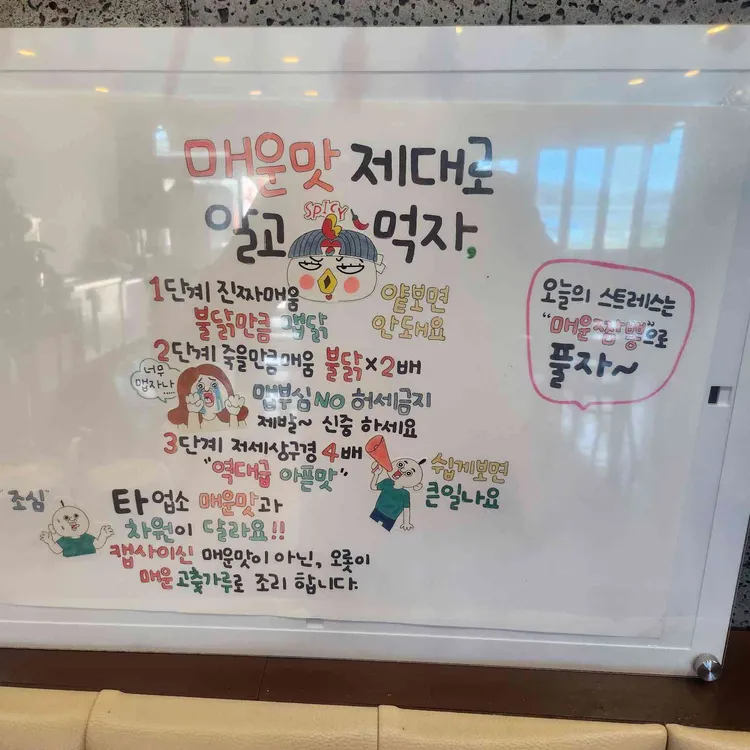 매운맛 제대로
알고 SPICY 먹자,
1단계 진짜매움
불닭만큼 맵닭
얕보면
안돼요
2단계 죽을만큼매움 불닭x2배
너무
맵자나....
맵부심 NO 허세금지
제발~ 신중 하세요
3단계 저세상구경 4배
"역대급 아픈맛"
쉽게보면
큰일나요
"조심"
타업소 매운맛과
차원이 달라요!!
캡사이신 매운맛이 아닌, 오롯이
매운고춧가루로 조리 합니다.
오늘의 스트레스는
"매운짬뽕"으로
풀자~